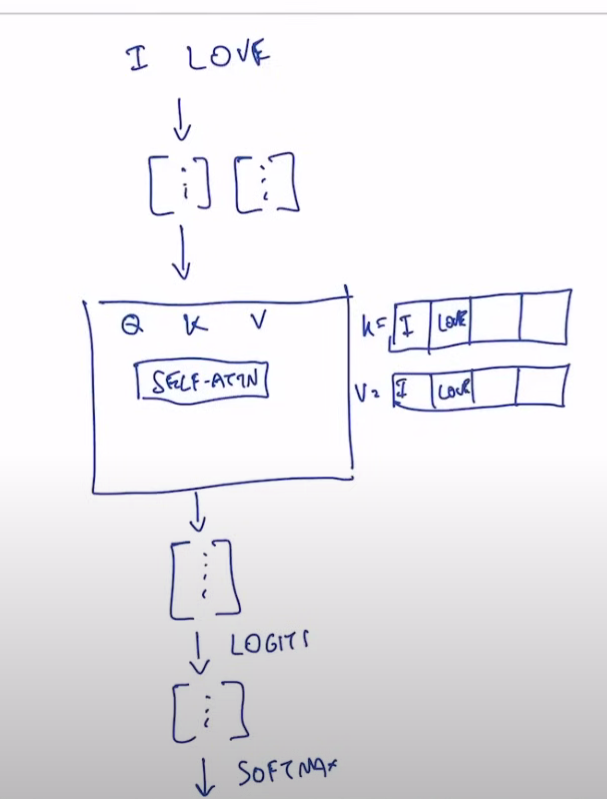 I LOVE
[⋮] [⋮]
Q K V
SELF-ATTN
K= I LOVE
V= I LOVE
[⋮]
LOGITS
[⋮]
SOFTMAX